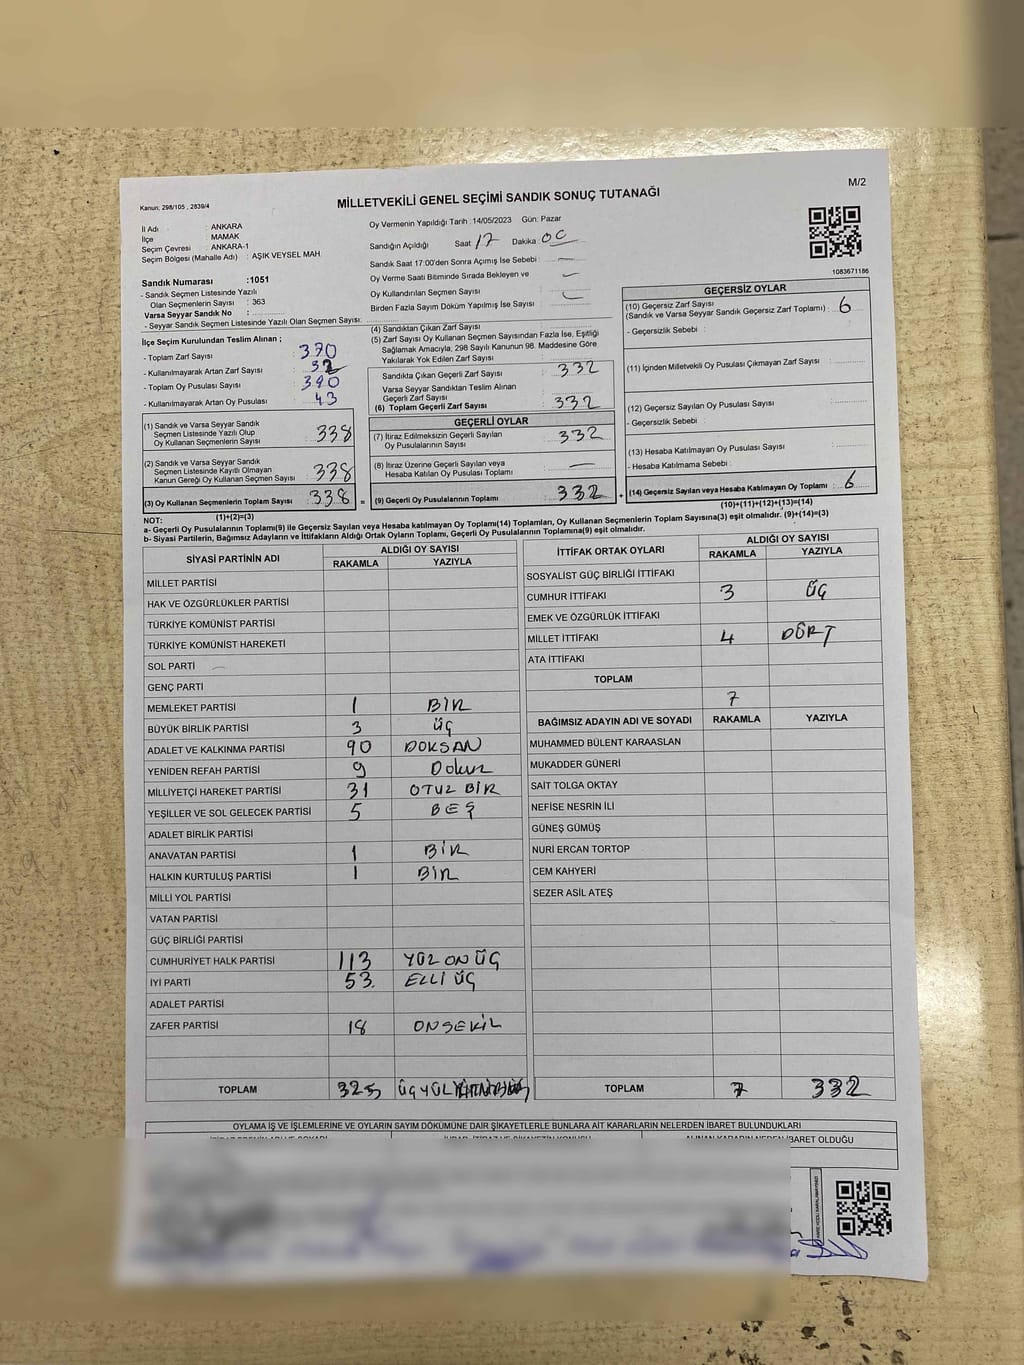 M/2
Kanun: 298/105 , 2839/4
MİLLETVEKİLİ GENEL SEÇİMİ SANDIK SONUÇ TUTANAĞI
İl Adı : ANKARA
İlçe : MAMAK
Seçim Çevresi : ANKARA-1
Seçim Bölgesi (Mahalle Adı) : AŞIK VEYSEL MAH
Sandık Numarası :1051
- Sandık Seçmen Listesinde Yazılı
Olan Seçmenlerin Sayısı : 363
Varsa Seyyar Sandık No :
- Seyyar Sandık Seçmen Listesinde Yazılı Olan Seçmen Sayısı:
İlçe Seçim Kurulundan Teslim Alınan ;
- Toplam Zarf Sayısı : 370
- Kullanılmayarak Artan Zarf Sayısı : 32
- Toplam Oy Pusulası Sayısı :
- Kullanılmayarak Artan Oy Pusulası : 43
(1) Sandık ve Varsa Seyyar Sandık
Seçmen Listesinde Yazılı Olup
Oy Kullanan Seçmenlerin Sayısı : 338
(2) Sandık ve Varsa Seyyar Sandık
Seçmen Listesinde Kayıtlı Olmayan
Kanun Gereği Oy Kullanan Seçmen Sayısı : 338
(3) Oy Kullanan Seçmenlerin Toplam Sayısı : 338 =
(1)+(2)=(3)
Oy Vermenin Yapıldığı Tarih : 14/05/2023 Gün: Pazar
Sandığın Açıldığı Saat 17 Dakika 00
Sandık Saat 17:00'den Sonra Açımış İse Sebebi :
Oy Verme Saati Bitiminde Sırada Bekleyen ve
Oy Kullandırılan Seçmen Sayısı :
Birden Fazla Sayım Döküm Yapılmış İse Sayısı :
(4) Sandıktan Çıkan Zarf Sayısı :
(5) Zarf Sayısı Oy Kullanan Seçmen Sayısından Fazla İse, Eşitliği
Sağlamak Amacıyla, 298 Sayılı Kanunun 98. Maddesine Göre
Yakılarak Yok Edilen Zarf Sayısı :
Sandıkta Çıkan Geçerli Zarf Sayısı : 332
Varsa Seyyar Sandıktan Teslim Alınan
Geçerli Zarf Sayısı :
(6) Toplam Geçerli Zarf Sayısı : 332
GEÇERLİ OYLAR
(7) İtiraz Edilmeksizin Geçerli Sayılan
Oy Pusulalarının Sayısı : 332
(8) İtiraz Üzerine Geçerli Sayılan veya
Hesaba Katılan Oy Pusulası Toplamı : —
(9) Geçerli Oy Pusulalarının Toplamı : 332 +
1083671186
GEÇERSİZ OYLAR
(10) Geçersiz Zarf Sayısı
(Sandık ve Varsa Seyyar Sandık Geçersiz Zarf Toplamı) : 6
- Geçersizlik Sebebi :
(11) İçinden Milletvekili Oy Pusulası Çıkmayan Zarf Sayısı :
(12) Geçersiz Sayılan Oy Pusulası Sayısı :
- Geçersizlik Sebebi :
(13) Hesaba Katılmayan Oy Pusulası Sayısı :
- Hesaba Katılmama Sebebi :
(14) Geçersiz Sayılan veya Hesaba Katılmayan Oy Toplamı : 6
(10)+(11)+(12)+(13)=(14)
NOT:
a- Geçerli Oy Pusulalarının Toplamı(9) ile Geçersiz Sayılan veya Hesaba katılmayan Oy Toplamı(14) Toplamları, Oy Kullanan Seçmenlerin Toplam Sayısına(3) eşit olmalıdır. (9)+(14)=(3)
b- Siyasi Partilerin, Bağımsız Adayların ve İttifakların Aldığı Ortak Oyların Toplamı, Geçerli Oy Pusulalarının Toplamına(9) eşit olmalıdır.
SİYASİ PARTİNİN ADI ALDIĞI OY SAYISI
RAKAMLA YAZIYLA
MİLLET PARTİSİ
HAK VE ÖZGÜRLÜKLER PARTİSİ
TÜRKİYE KOMÜNİST PARTİSİ
TÜRKİYE KOMÜNİST HAREKETİ
SOL PARTİ
GENÇ PARTİ
MEMLEKET PARTİSİ 1 BİR
BÜYÜK BİRLİK PARTİSİ 3 ÜÇ
ADALET VE KALKINMA PARTİSİ 90 DOKSAN
YENİDEN REFAH PARTİSİ 9 Dokuz
MİLLİYETÇİ HAREKET PARTİSİ 31 OTUZ BİR
YEŞİLLER VE SOL GELECEK PARTİSİ 5 BEŞ
ADALET BİRLİK PARTİSİ
ANAVATAN PARTİSİ 1 BİR
HALKIN KURTULUŞ PARTİSİ 1 BİR
MİLLİ YOL PARTİSİ
VATAN PARTİSİ
GÜÇ BİRLİĞİ PARTİSİ
CUMHURİYET HALK PARTİSİ 113 YÜZ ON ÜÇ
İYİ PARTİ 53 ELLİ ÜÇ
ADALET PARTİSİ
ZAFER PARTİSİ 18 ONSEKİZ
TOPLAM 325 ÜÇYÜZ
İTTİFAK ORTAK OYLARI ALDIĞI OY SAYISI
RAKAMLA YAZIYLA
SOSYALİST GÜÇ BİRLİĞİ İTTİFAKI
CUMHUR İTTİFAKI 3 ÜÇ
EMEK VE ÖZGÜRLÜK İTTİFAKI
MİLLET İTTİFAKI 4 DÖRT
ATA İTTİFAKI
TOPLAM 7
BAĞIMSIZ ADAYIN ADI VE SOYADI RAKAMLA YAZIYLA
MUHAMMED BÜLENT KARAASLAN
MUKADDER GÜNERİ
SAİT TOLGA OKTAY
NEFİSE NESRİN İLİ
GÜNEŞ GÜMÜŞ
NURİ ERCAN TORTOP
CEM KAHYERİ
SEZER ASİL ATEŞ
TOPLAM 7 332
OYLAMA İŞ VE İŞLEMLERİNE VE OYLARIN SAYIM DÖKÜMÜNE DAİR ŞİKAYETLERLE BUNLARA AİT KARARLARIN NELERDEN İBARET BULUNDUKLARI
ALINAN KARARIN NEDEN İBARET OLDUĞU